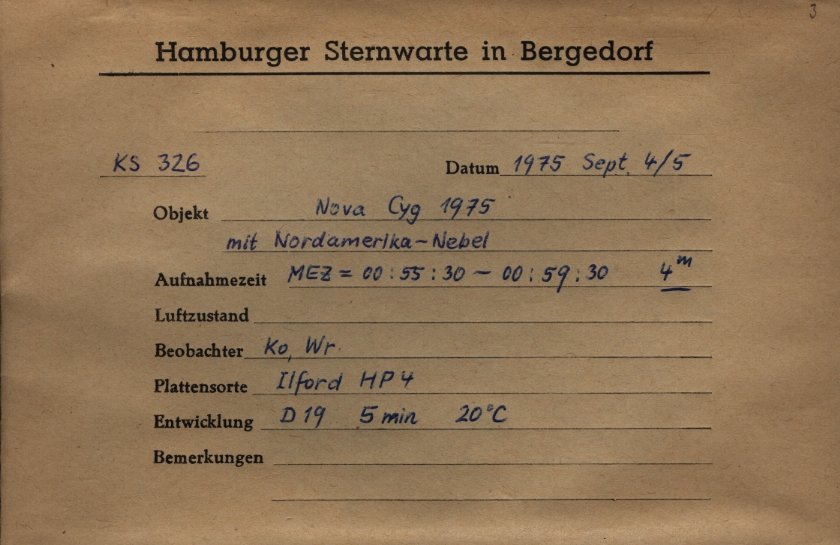 3
Hamburger Sternwarte in Bergedorf
KS 326 Datum 1975 Sept. 4/5
Objekt Nova Cyg 1975
mit Nordamerika-Nebel
Aufnahmezeit MEZ = 00:55:30 - 00:59:30 4m
Luftzustand
Beobachter Ko, Wr.
Plattensorte Ilford HP4
Entwicklung D19 5 min 20°C
Bemerkungen